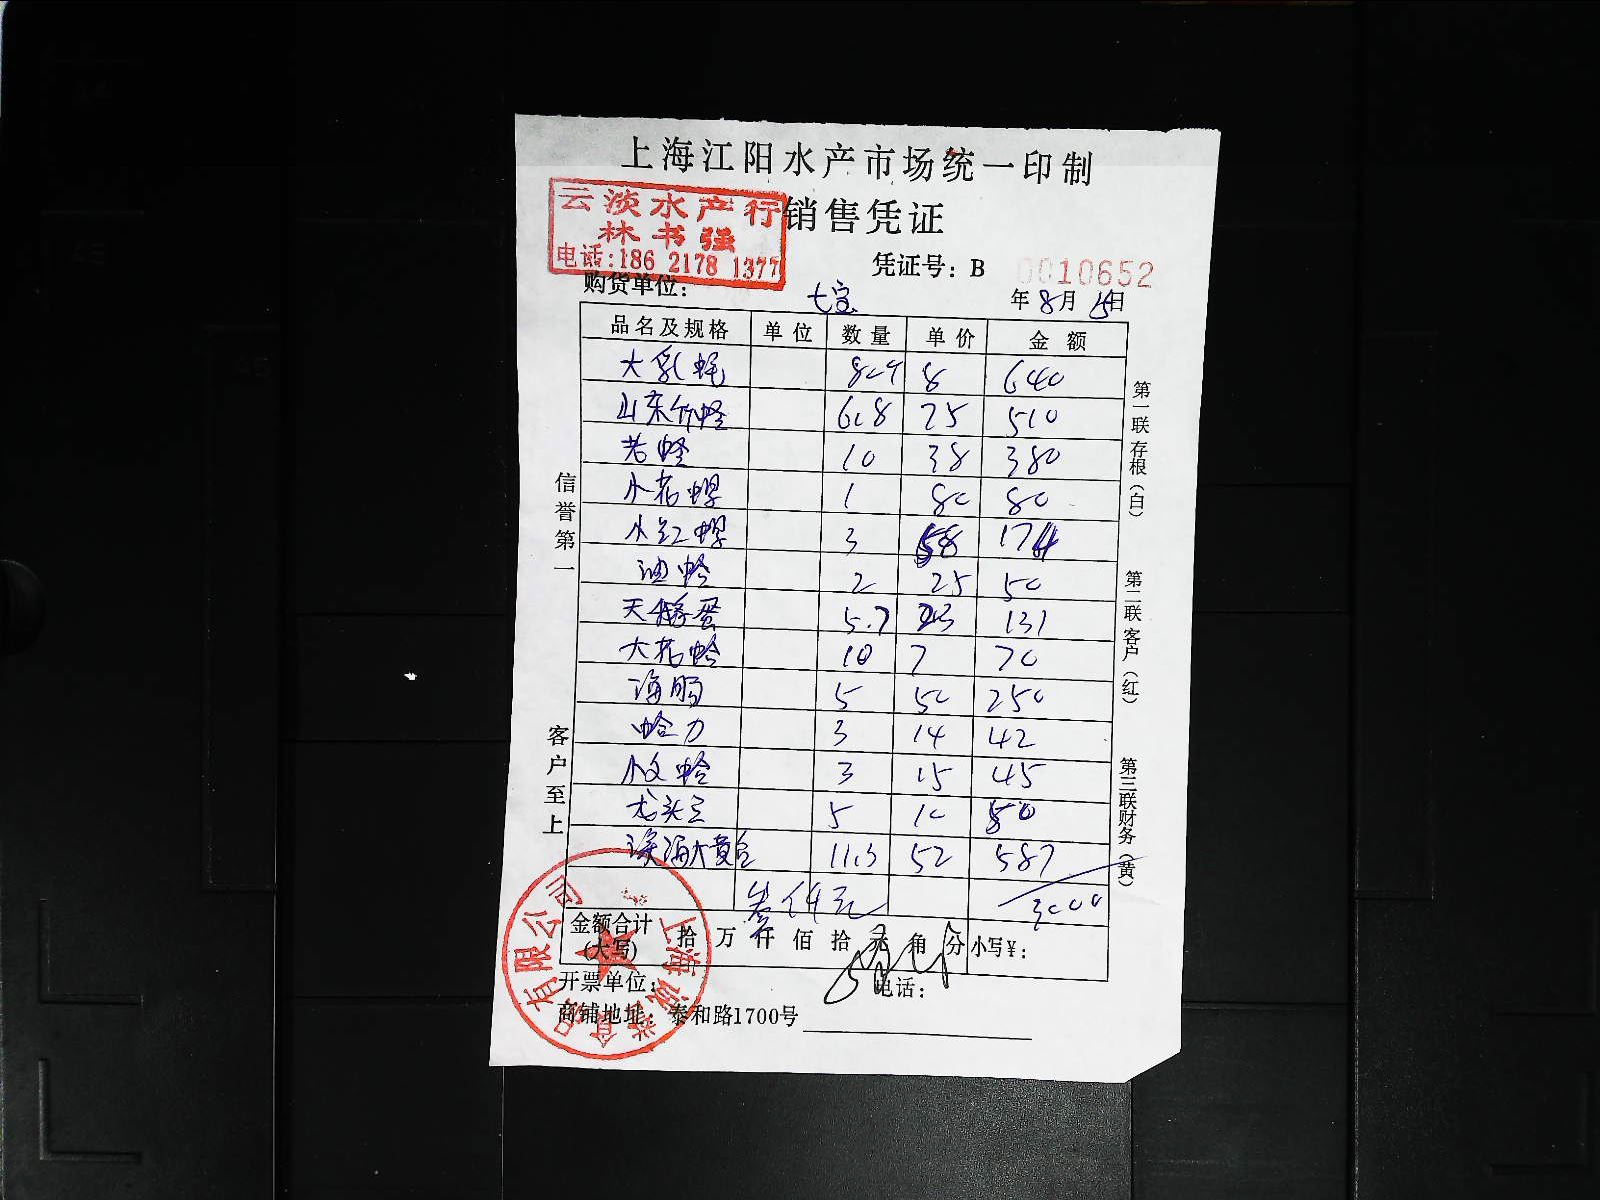 上海江阳水产市场统一印制
销售凭证
云淡水产行
林书强
电话:186 2178 1377
凭证号: B 0010652
购货单位: 七宝 年8月15日
品名及规格 单位 数量 单价 金额
大乳蚝 80个 8 640
山东竹蛏 6.8 75 510
老蛏 10 38 380
小花螺 1 80 80
小红螺 3 58 174
油蛤 2 25 50
天鹅蛋 5.7 23 131
大花蛤 10 7 70
海肠 5 50 250
哈力 3 14 42
小文蛤 3 15 45
龙头 5 10 50
深海大黄 11.3 52 587
叁仟元 3000
金额合计(大写) 拾 万 仟 佰 拾 元 角 分 小写¥:
开票单位: 电话:
商铺地址: 泰和路1700号
信誉第一
客户至上
第一联存根(白)
第二联客户(红)
第三联财务(黄)
上海诚誉食品有限公司